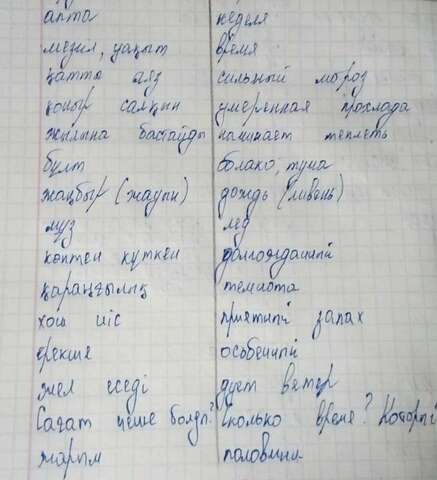 апта неделя
мезгіл, уақыт время
қатты аяз сильный мороз
қоңыр салқын умеренная прохлада
жылына бастауды начинает теплеть
бұлт облако, туча
жаңбыр (жауын) дождь (ливень)
мұз лед
көптен күткен долгожданный
қараңғылық темнота
хош иіс приятный запах
ерекше особенный
жел еседі дует ветер
Сағат неше болды? Сколько время? Который
жарым половина